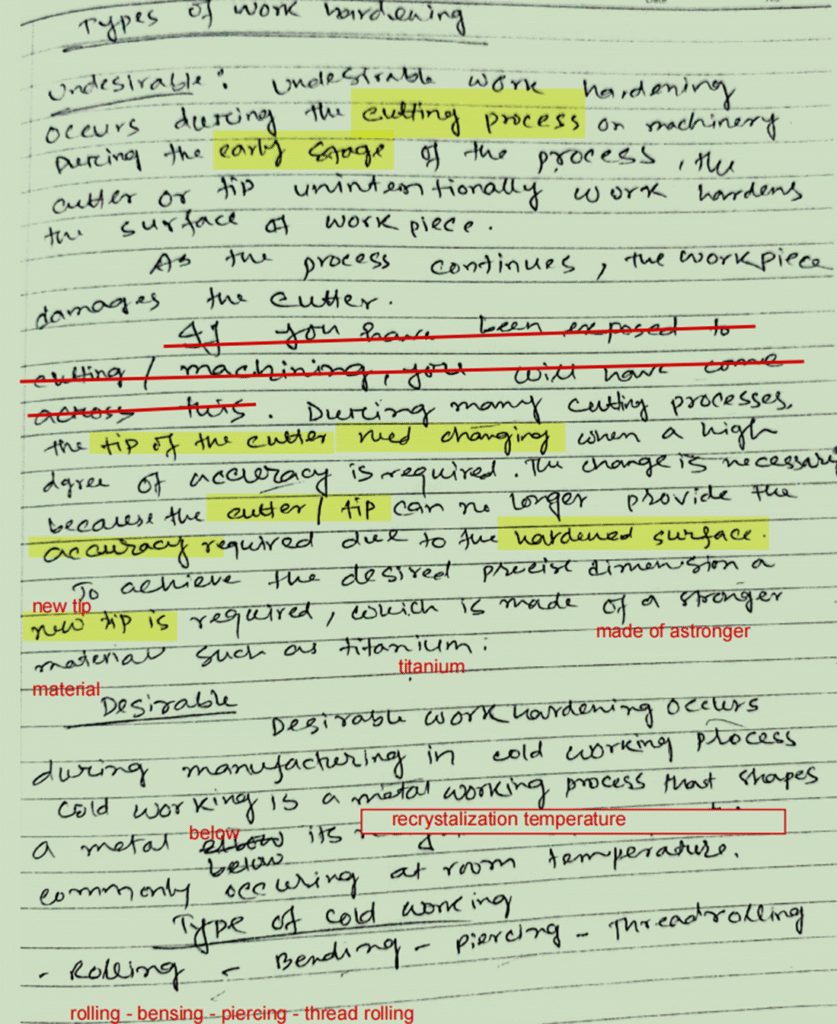 Types of work hardening
Undesirable: Undesirable work hardening
occurs during the cutting process or machinery
During the early stage of the process, the
cutter or tip unintentionally work hardens
the surface of work piece.
As the process continues, the workpiece
damages the cutter.
If you have been exposed to
cutting / machining, you will have come
across this. During many cutting processes,
the tip of the cutter need changing when a high
dgree of accuracy is required. The change is necessary
because the cutter / tip can no longer provide the
accuracy required due to the hardened surface.
To achieve the desired precise dimension a
new tip
new tip is required, which is made of a stronger
made of astronger
material such as titanium:
titanium
material
Desirable
Desirable work hardening occurs
during manufacturing in cold working process
Cold working is a metal working process that shapes
recrystalization temperature
below
a metal elbow its
below
commonly occuring at room temperature.
Type of cold working
- Rolling - Bending - piercing - Threadrolling
rolling - bensing - piercing - thread rolling